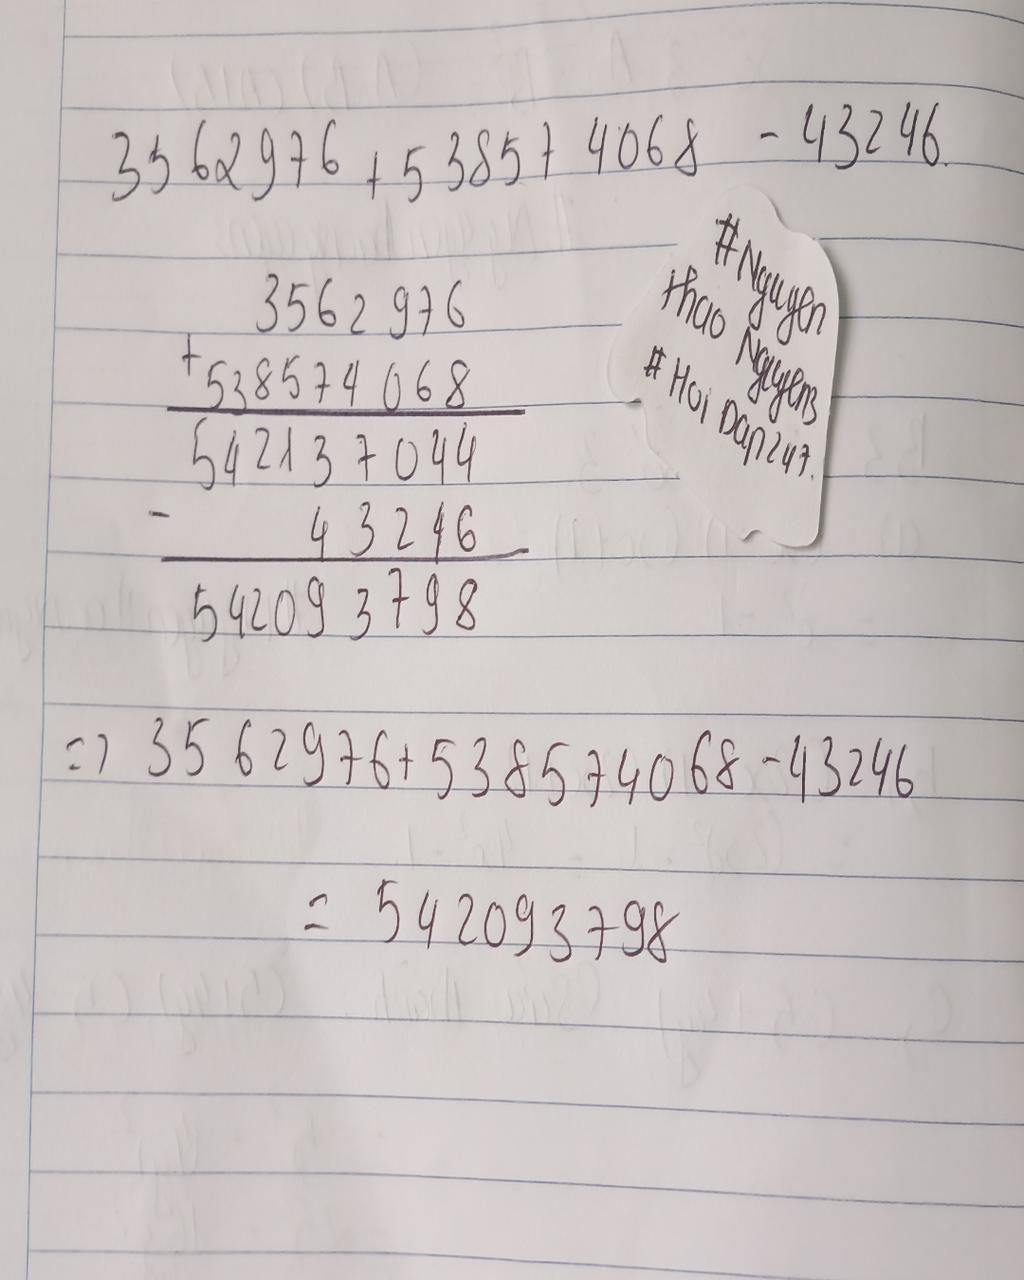 3562976 + 538574068 - 43246.
#Nguyen
thao Nguyen3
# Hoi Dap247.
3562976
+
538574068
542137044
-
43246
542093798
=> 3562976 + 538574068 - 43246
= 542093798